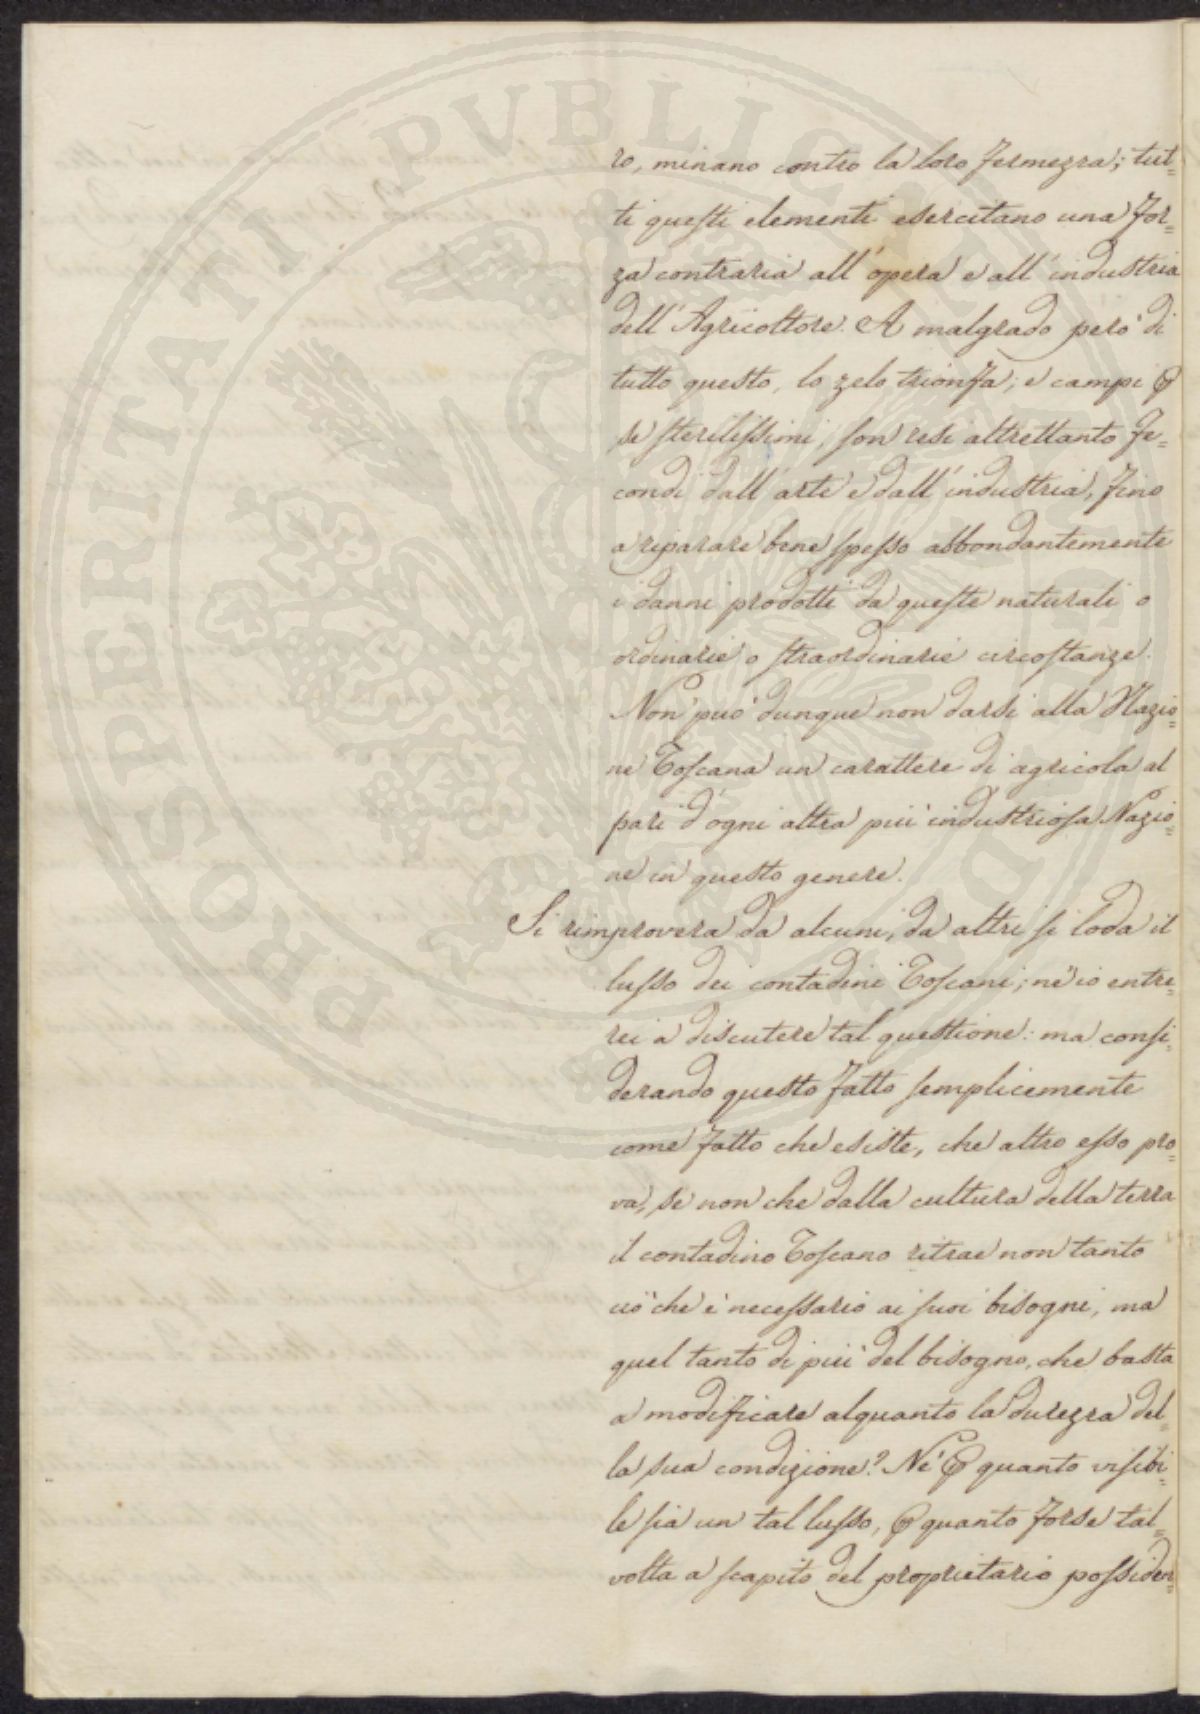 PROSPERITATI PVBLICAE
ro, minano contro la loro fermezza; tut=
ti questi elementi esercitano una for=
za contraria all'opera e all'industria
dell'Agricoltore. A malgrado però di
tutto questo, lo zelo trionfa; e campi ꝑ
se sterilissimi, son resi altrettanto fe=
condi dall'arte e dall'industria, fino
a riparare bene spesso abbondantemente
i danni prodotti da queste naturali o
ordinarie, o straordinarie circostanze.
Non può dunque non darsi alla Nazio=
ne Toscana un carattere di agricola al
pari d'ogni altra più industriosa Nazio=
ne in questo genere.
Si rimprovera da alcuni, da altri si loda il
lusso dei contadini Toscani; nè io entre=
rei a discutere tal questione: ma consi=
derando questo fatto semplicemente
come fatto che esiste, che altro esso pro=
va, se non che dalla cultura della terra
il contadino Toscano ritrae non tanto
ciò che è necessario ai suoi bisogni, ma
quel tanto di più del bisogno, che basta
a modificare alquanto la durezza del=
la sua condizione? Nè ꝑ quanto visibi=
le sia un tal lusso, ꝑ quanto forse tal=
volta a scapito del proprietario possiden=